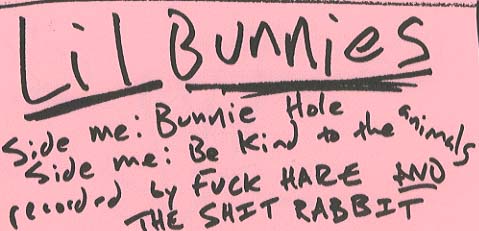 Lil Bunnies
Side me: Bunnie Hole
Side me: Be Kind to the animals
recorded by FUCK HARE AND
THE SHIT RABBIT